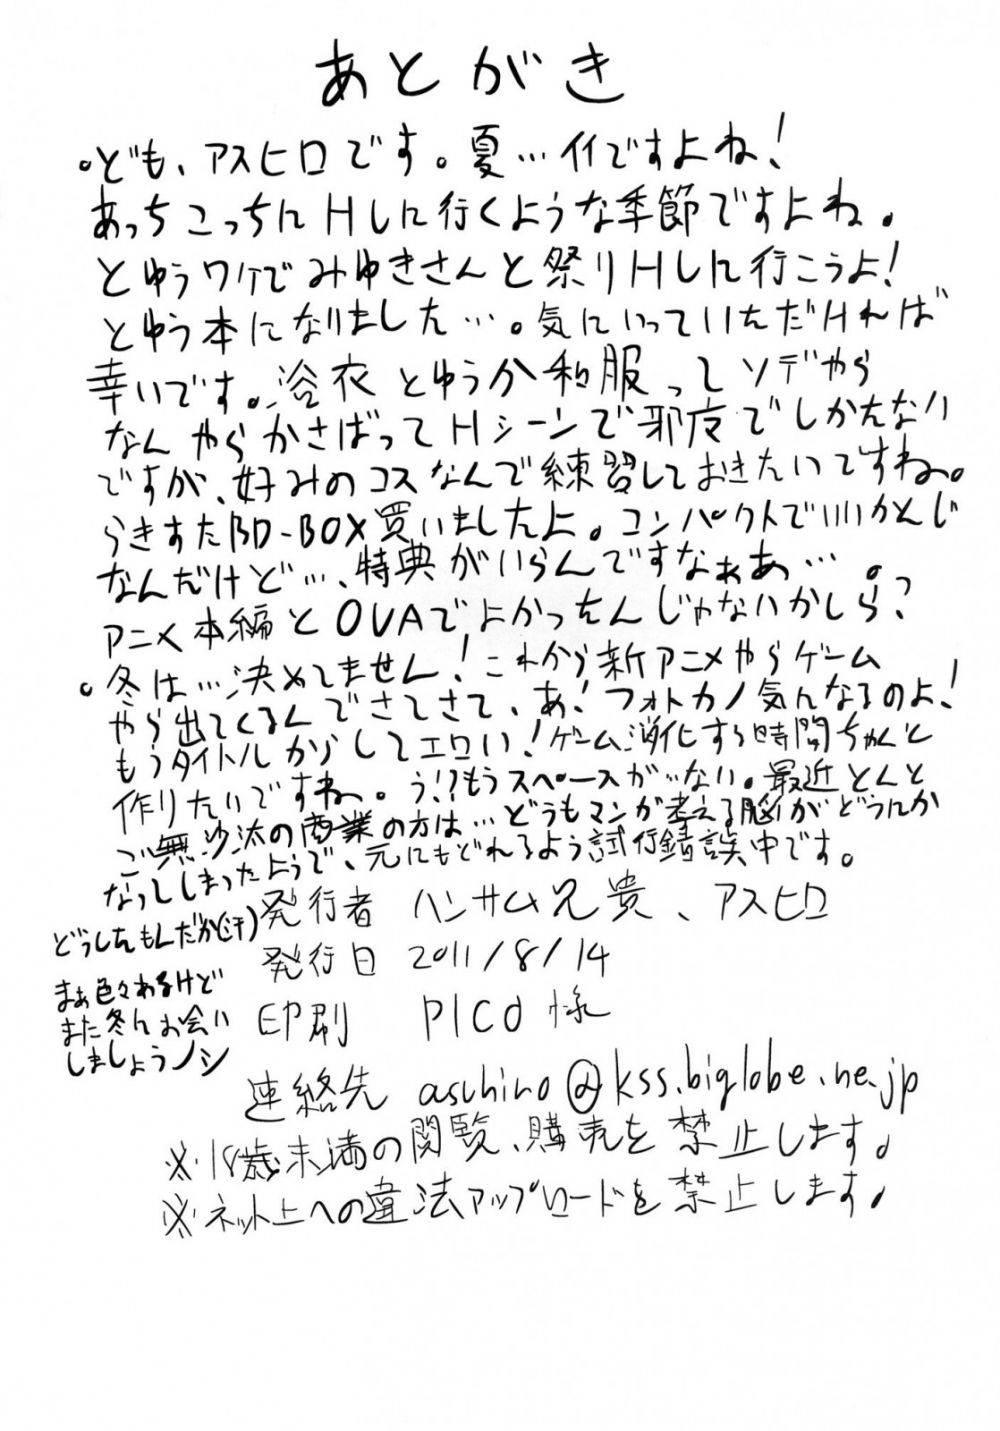 あとがき
。ども、アスヒロです。夏…イイですよね!
あっちこっちにHしに行くような季節ですよね。
とゆうワケでみゆきさんと祭りHしに行こうよ!
とゆう本になりました…。気にいっていただければ
幸いです。浴衣とゆうか和服ってソデやら
なんやらかさばってHシーンで邪魔でしかたない
ですが、好みのコスなんで練習しておきたいですね。
らきすたBD-BOX買いましたよ。コンパクトでいいかんじ
なんだけど…、特典がいらんですなぁあ…。
アニメ本編とOVAでよかったんじゃないかしら?
。冬は…決めてません!これから新アニメやらゲーム
やら出てくるんでさてさて、あ!フォトカノ気になるのよ!
もうタイトルからしてエロい!ゲーム消化する時間ちゃんと
作りたいですね。う!?もうスペースがない。最近とんと
ご無沙汰の商業の方は…どうもマンガ考える脳がどうにか
なってしまったようで、元にもどれるよう試行錯誤中です。
どうしたもんだか(汗)
まぁ色々わるけど
また冬にお会い
しましょうノシ
発行者 ハンサム兄貴、アスヒロ
発行日 2011/8/14
印刷 PICO様
連絡先 aschiro@kss.biglobe.ne.jp
※18歳未満の閲覧、購売を禁止します。
※ネット上への違法アップロードを禁止します。